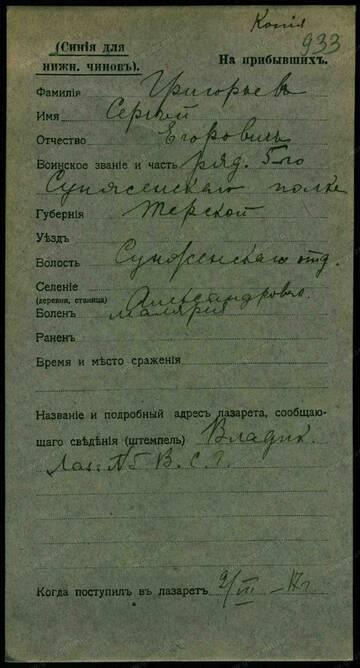 Копія
933
(Синія для
нижн. чиновъ).
На прибывшихъ.
Фамилія Григорьевъ
Имя Сергей
Отчество Егоровичъ
Воинское званіе и часть ряд. 5-го
Сунженскаго полка
Губернія Терской
Уѣздъ
Волость Сунженскаго отд.
Селеніе
(деревня, станица) Александровск.
Боленъ малярія
Раненъ
Время и мѣсто сраженія
Названіе и подробный адресъ лазарета, сообщаю-
щаго свѣдѣнія (штемпель) Владик.
Лаз. №5 В.С.Г.
Когда поступилъ въ лазаретъ 2/VII -17 г.